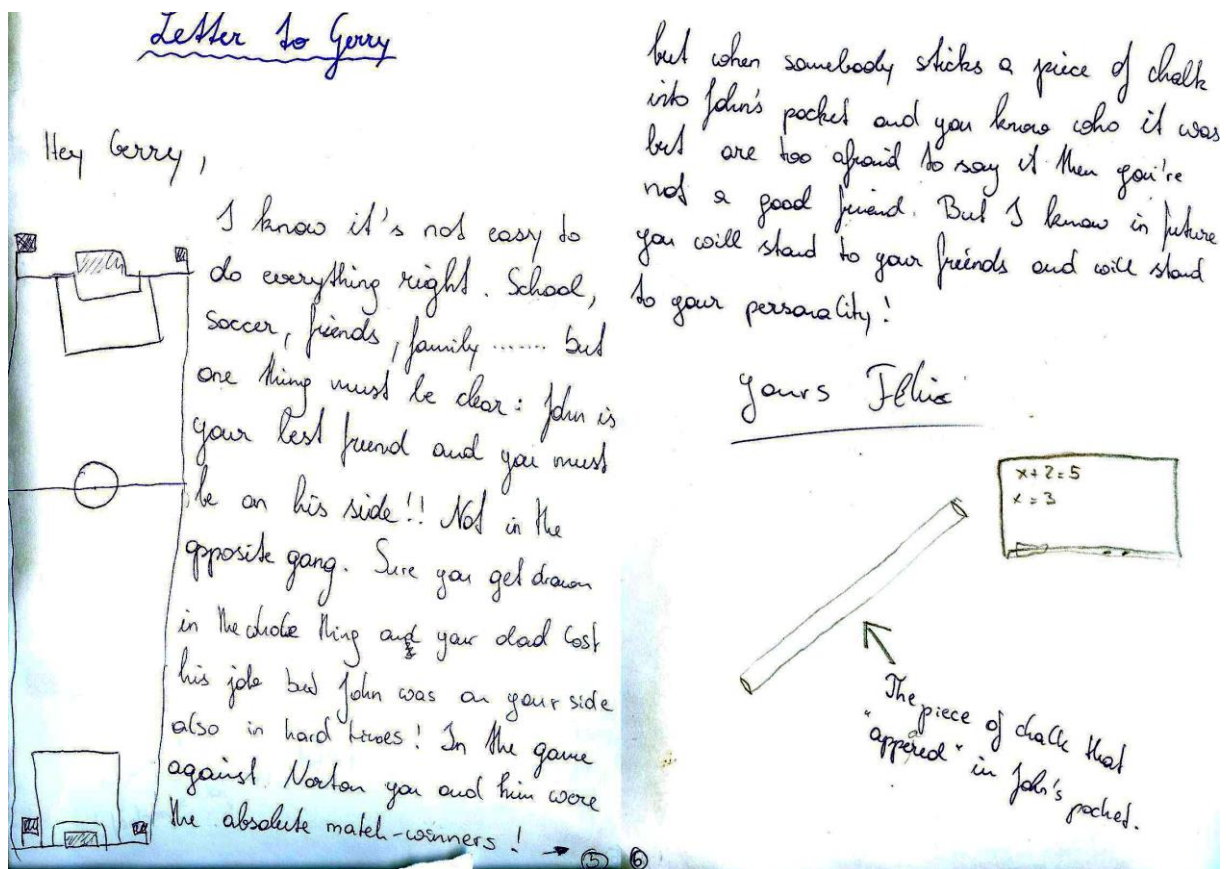 Letter to Gerry
Hey Gerry,
I know it's not easy to
do everything right. School,
soccer, friends, family ....... but
one thing must be clear: John is
your best friend and you must
be on his side!! Not in the
opposite gang. Sure you get drawn
in the whole thing and your dad lost
his job but John was on your side
also in hard times! In the game
against Norton you and him were
the absolute match-winners! → 5
6
but when somebody sticks a piece of chalk
into John's pocket and you know who it was
but are too afraid to say it then you're
not a good friend. But I know in future
you will stand to your friends and will stand
to your personality!
yours Felix
x+2=5
x=3
The piece of chalk that
"appered" in John's pocket.